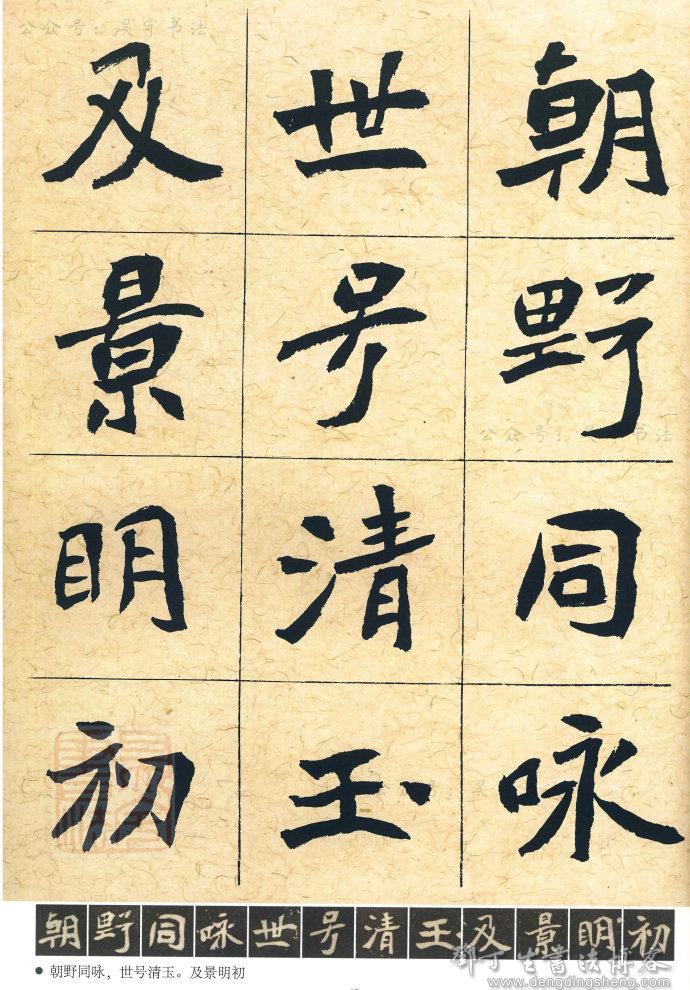 公众号：晨宇书法
朝野同咏
世号清玉
及景明初
公众号：书法
朝野同咏世号清玉及景明初
● 朝野同咏，世号清玉。及景明初
邓丁生书法博客
www.dengdingsheng.com